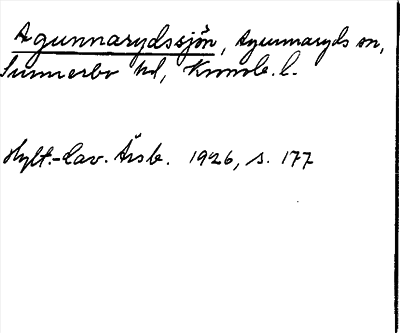 Agunnarydssjön, Agunnaryds sn,
Sunnerbo hd, Kronob. l.
Hylt.-Cav. Årsb. 1926, s. 177